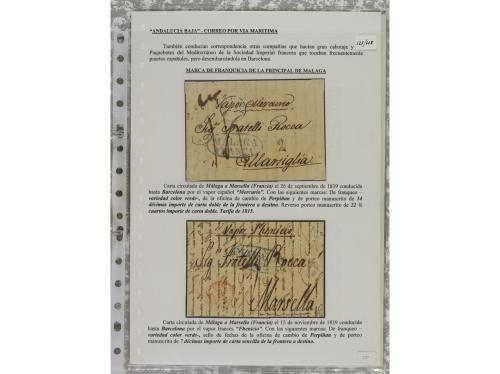 "ANDALUCIA BAJA" - CORREO POR VIA MARITIMA
También conducían correspondencia otras compañías que hacían gran cabotaje y
Paquebotes del Mediterráneo de la Sociedad Imperial francesa que tocaban frecuentemente
puertos españoles, pero desembarcándola en Barcelona.
MARCA DE FRANQUICIA DE LA PRINCIPAL DE MALAGA
Vapor Mercurio
Sig.ri Fratelli Rocca
MALAGA
Marsiglia
Carta circulada de Málaga a Marsella (Francia) el 26 de septiembre de 1839 conducida
hasta Barcelona por el vapor español "Mercurio". Con las siguientes marcas: De franqueo –
variedad color verde-, de la oficina de cambio de Perpiñan y de porteo manuscrito de 14
décimas importe de carta doble de la frontera a destino. Reverso porteo manuscrito de 22 ½
cuartos importe de carta doble. Tarifa de 1815.
Vapor Phenicio
Sig Fratelli Rocca
Marsella
Carta circulada de Málaga a Marsella (Francia) el 13 de noviembre de 1839 conducida
hasta Barcelona por el vapor francés "Fhenicio". Con las siguientes marcas: De franqueo –
variedad color verde-, sello de fechas de la oficina de cambio de Perpiñan y de porteo
manuscrito de 7 décimas importe de carta sencilla de la frontera a destino.